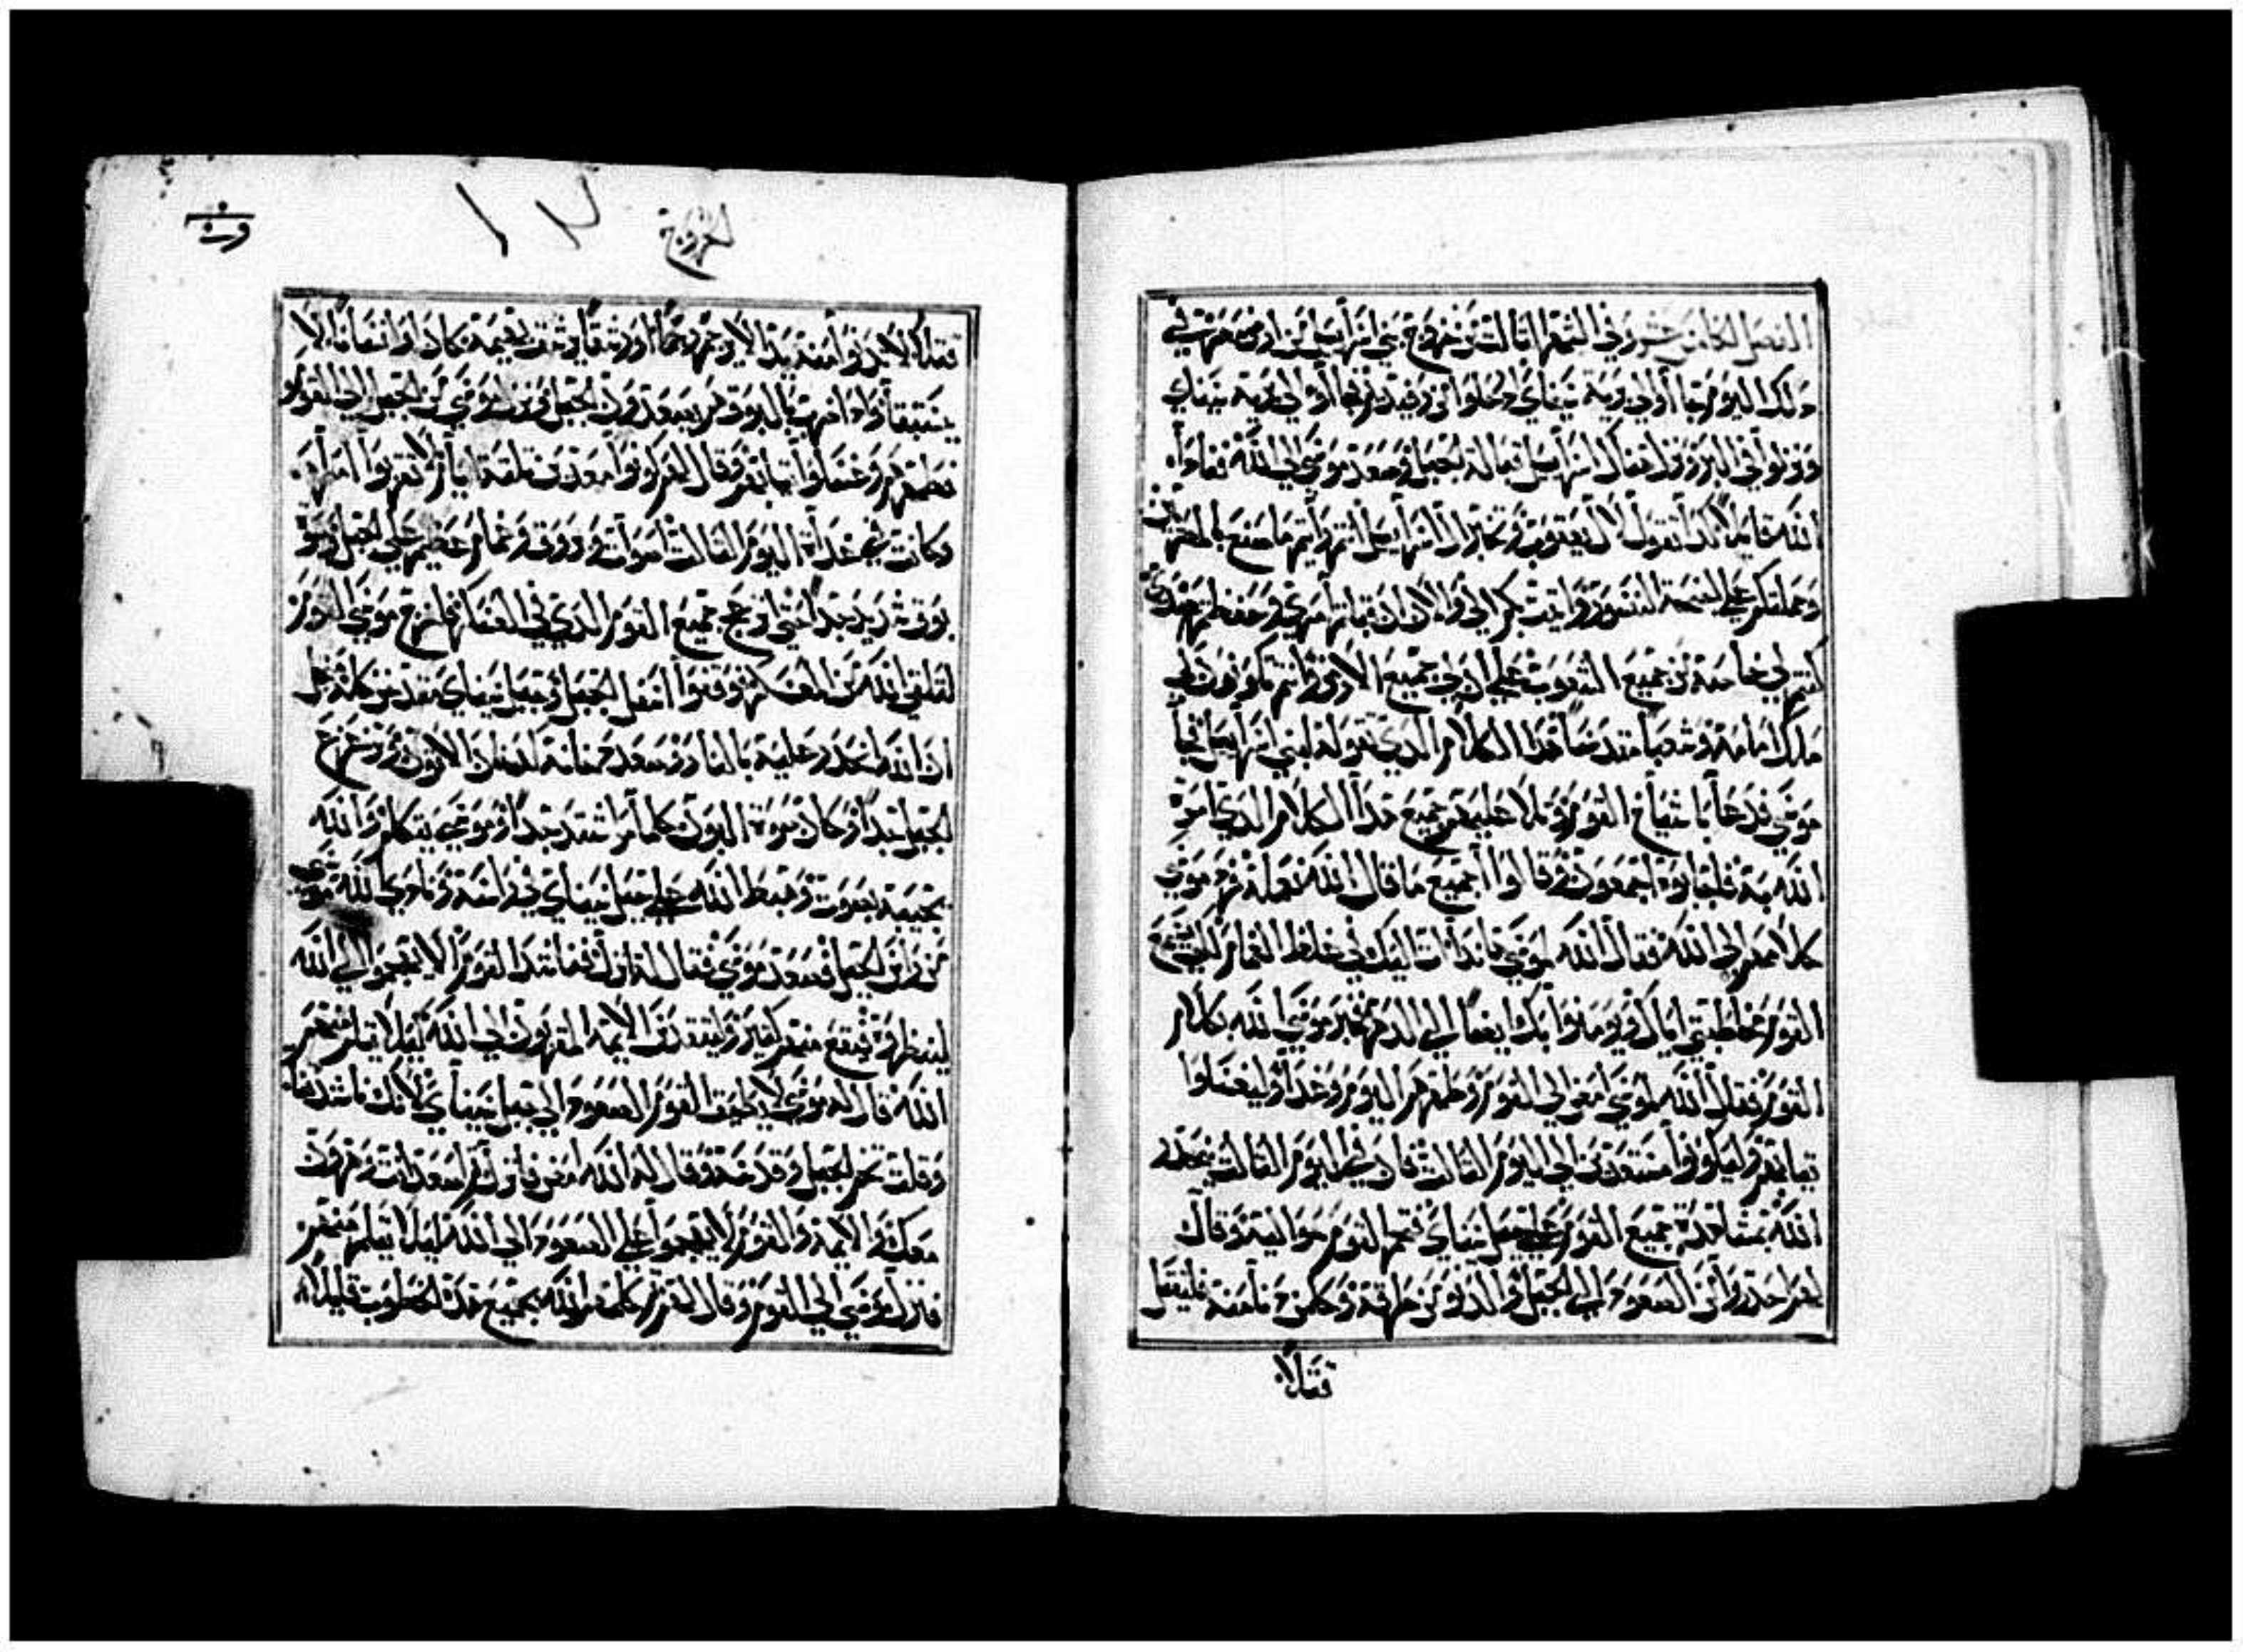 الفصل الثامن عشر وفي الشهر الثالث من خروج بني اسراييل من ارض مصر في
ذلك اليوم جا أوا الي برية سيناي وحلوا في رفيديم وجا أوا الي برية سيناي
ونزلوا في البر ونزل هناك اسراييل قبالة الجبل وصعد موسي الي الله فناداه
الله قايلا كذا تقول لال يعقوب وتخبر ال اسراييل انتم رأيتم ما صنع بالمصريين
وحملتكم علي اجنحة النسور واتيت بكم الي والان ان قبلتم امري وحفظتم عهدي
كنتم لي خاصة من جميع الشعوب علي ان لي جميع الارض وانتم تكونون لي
ملك امامة وشعبا مقدسا هذا الكلام الذي تقوله لبني اسراييل فجا
موسي فدعا باشياخ القوم وتلا عليهم جميع هذا الكلام الذي امره
الله به فاجابوه اجمعون وقالوا جميع ما قال الله نعمله فرد موسي
كلامهم الي الله فقال الله لموسي ها نذا ات اليك في غلظ الغمام لكي يسمع
القوم مخاطبتي اياك ويومنوا بك ايضا الي الدهر فخبر موسي الله بكلام
القوم فقال الله لموسي امض الي القوم وطهرهم اليوم وغدا وليغسلوا
ثيابهم وليكونوا مستعدين الي اليوم الثالث فان في اليوم الثالث ينحدر
الله بمشاهدة جميع القوم علي جبل سيناي فتحم القوم حواليه وقال
لهم احذروا من الصعود الي الجبل والدنو من حوافه وكل من دنا منه فليقتل
قتلا
الخروج
١٢
قتلا لا تدنوا منه يد الا رجم رجما او رشقا
يستبقا واذا البوق صعدوا الجبل ونزل موسي من الجبل الي القوم
فطهرهم وغسلوا ثيابهم وقال لهم كونوا معدين ثلثة ايام لا تقربوا امرأة
وكانت في غداة اليوم الثالث اصوات وبروق وغمام عظيم علي الجبل وصوت
بوق شديد جدا حتي ارتج جميع القوم الذي في العسكر فاخرج موسي القوم
لتلقي الله من العسكر ووقفوا اسفل الجبل وجبل سيناي مقدس كله
ان الله انحدر عليه بالنار وصعد دخانه كدخان الاتون
الجبل جدا وكان صوت البوق كلما مر اشتد جدا وموسي يتكلم والله
يجيبه بصوت وهبط الله علي جبل سيناي في راسه ونادي الله موسي
من راس الجبل فصعد موسي فقال له انزل فناشد القوم الا يهجموا الي الله
لينظروا فيقع منهم كثير وليتقدس الايمة المقربون الي الله ليلا يثلم منهم
الله قال له موسي لا يطيق القوم الصعود الي جبل سيناي لانك ناشدتنا
وقلت تخم الجبل وقدسه وقال له الله امض فانزل ثم اصعد انت وهرون
معك والايمة والقوم لا يهجموا علي الصعود الي الله ليلا يثلم منهم
فانزل موسي الي القوم وقال لهم كلمهم الله بجميع هذه الخطوب قايلا